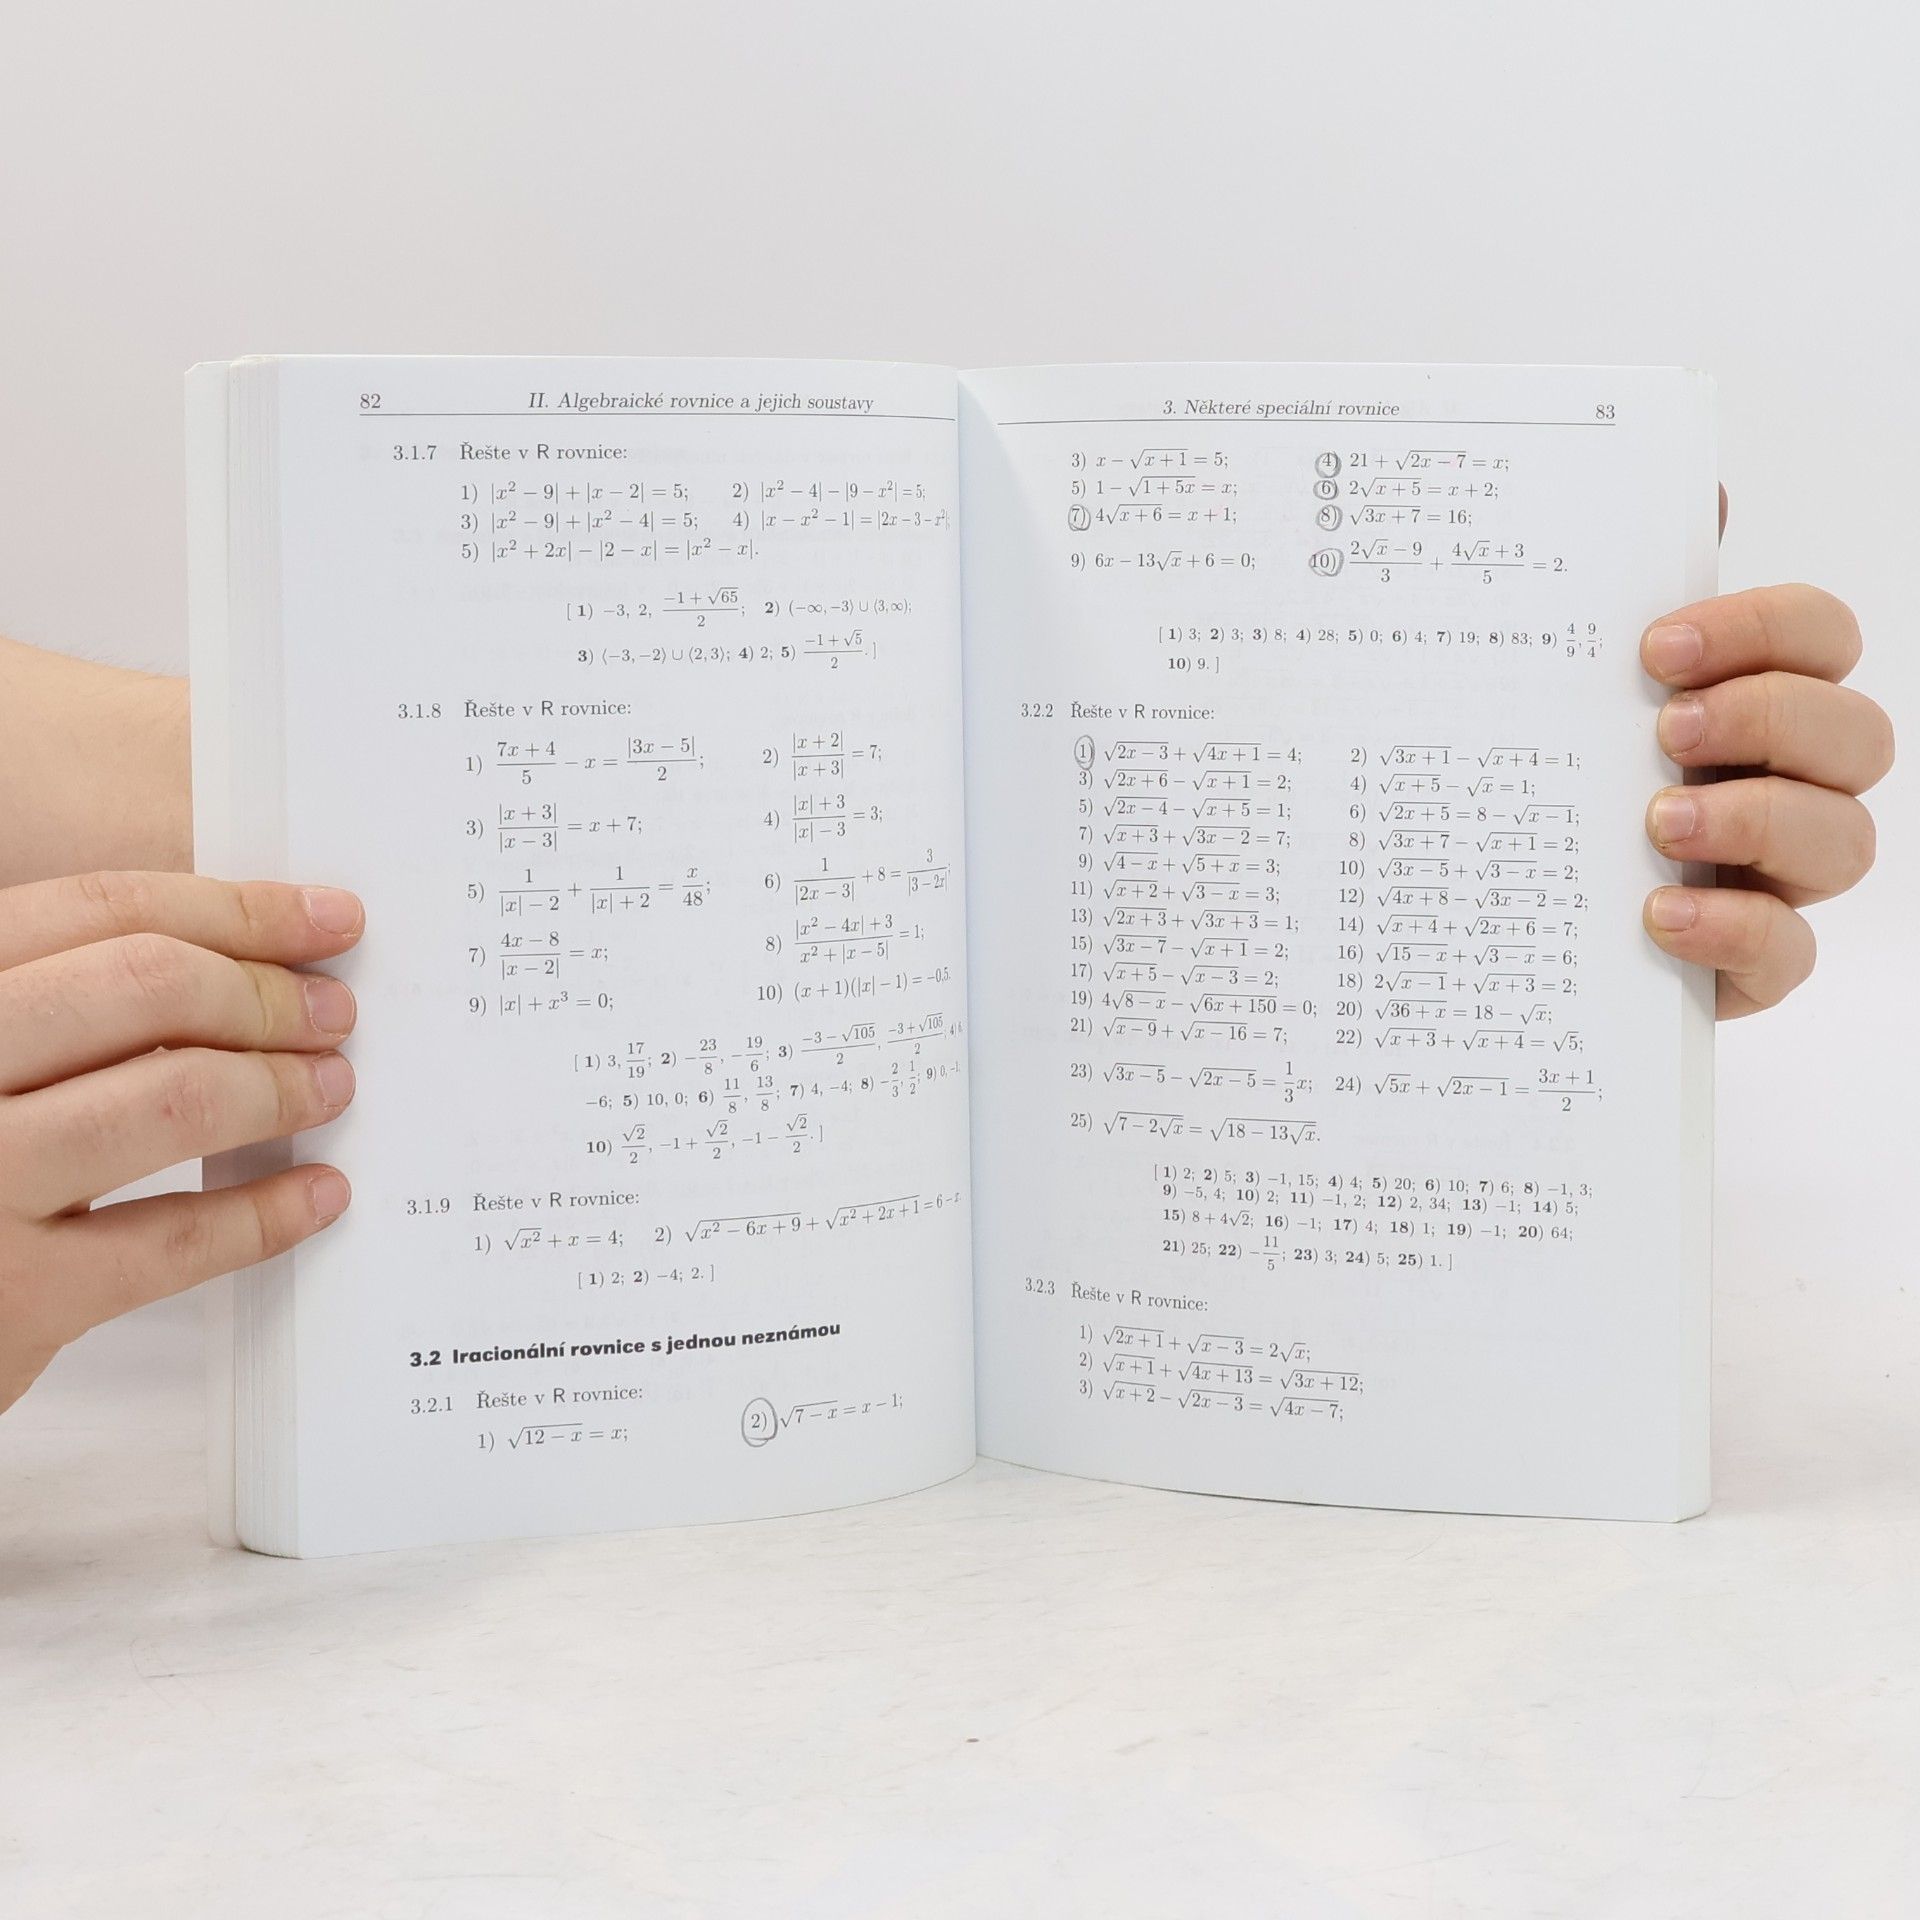 82 II. Algebraické rovnice a jejich soustavy
3.1.7 Řešte v R rovnice:
1) |x² − 9| + |x − 2| = 5; 2) |x² − 4| − |9 − x²| = 5;
3) |x² − 9| + |x² − 4| = 5; 4) |x − x² − 1| = |2x − 3 − x²|;
5) |x² + 2x| − |2 − x| = |x² − x|.
[ 1) −3, 2, (−1 + √65)/2; 2) (−∞, −3⟩ ∪ ⟨3, ∞);
3) ⟨−3, −2⟩ ∪ ⟨2, 3⟩; 4) 2; 5) (−1 + √5)/2. ]
3.1.8 Řešte v R rovnice:
1) (7x + 4)/5 − x = |3x − 5|/2; 2) |x + 2|/|x + 3| = 7;
3) |x + 3|/|x − 3| = x + 7; 4) (|x| + 3)/(|x| − 3) = 3;
5) 1/(|x| − 2) + 1/(|x| + 2) = x/48; 6) 1/|2x − 3| + 8 = 3/|3 − 2x|;
7) (4x − 8)/|x − 2| = x; 8) (|x² − 4x| + 3)/(x² + |x − 5|) = 1;
9) |x| + x³ = 0; 10) (x + 1)(|x| − 1) = −0,5.
[ 1) 3, 17/19; 2) −23/8, −19/6; 3) (−3 − √105)/2, (−3 + √105)/2; 4) 6,
−6; 5) 10, 0; 6) 11/8, 13/8; 7) 4, −4; 8) −2/3, 1/2; 9) 0, −1,
10) √2/2, −1 + √2/2, −1 − √2/2. ]
3.1.9 Řešte v R rovnice:
1) √(x²) + x = 4; 2) √(x² − 6x + 9) + √(x² + 2x + 1) = 6 − x.
[ 1) 2; 2) −4; 2. ]
3.2 Iracionální rovnice s jednou neznámou
3.2.1 Řešte v R rovnice:
1) √(12 − x) = x; 2) √(7 − x) = x − 1;
3. Některé speciální rovnice 83
3) x − √(x + 1) = 5; 4) 21 + √(2x − 7) = x;
5) 1 − √(1 + 5x) = x; 6) 2√(x + 5) = x + 2;
7) 4√(x + 6) = x + 1; 8) √(3x + 7) = 16;
9) 6x − 13√x + 6 = 0; 10) (2√x − 9)/3 + (4√x + 3)/5 = 2.
[ 1) 3; 2) 3; 3) 8; 4) 28; 5) 0; 6) 4; 7) 19; 8) 83; 9) 4/9, 9/4;
10) 9. ]
3.2.2 Řešte v R rovnice:
1) √(2x − 3) + √(4x + 1) = 4; 2) √(3x + 1) − √(x + 4) = 1;
3) √(2x + 6) − √(x + 1) = 2; 4) √(x + 5) − √x = 1;
5) √(2x − 4) − √(x + 5) = 1; 6) √(2x + 5) = 8 − √(x − 1);
7) √(x + 3) + √(3x − 2) = 7; 8) √(3x + 7) − √(x + 1) = 2;
9) √(4 − x) + √(5 + x) = 3; 10) √(3x − 5) + √(3 − x) = 2;
11) √(x + 2) + √(3 − x) = 3; 12) √(4x + 8) − √(3x − 2) = 2;
13) √(2x + 3) + √(3x + 3) = 1; 14) √(x + 4) + √(2x + 6) = 7;
15) √(3x − 7) − √(x + 1) = 2; 16) √(15 − x) + √(3 − x) = 6;
17) √(x + 5) − √(x − 3) = 2; 18) 2√(x − 1) + √(x + 3) = 2;
19) 4√(8 − x) − √(6x + 150) = 0; 20) √(36 + x) = 18 − √x;
21) √(x − 9) + √(x − 16) = 7; 22) √(x + 3) + √(x + 4) = √5;
23) √(3x − 5) − √(2x − 5) = 1/3 x; 24) √(5x) + √(2x − 1) = (3x + 1)/2;
25) √(7 − 2√x) = √(18 − 13√x).
[ 1) 2; 2) 5; 3) −1, 15; 4) 4; 5) 20; 6) 10; 7) 6; 8) −1, 3;
9) −5, 4; 10) 2; 11) −1, 2; 12) 2, 34; 13) −1; 14) 5;
15) 8 + 4√2; 16) −1; 17) 4; 18) 1; 19) −1; 20) 64;
21) 25; 22) −11/5; 23) 3; 24) 5; 25) 1. ]
3.2.3 Řešte v R rovnice:
1) √(2x + 1) + √(x − 3) = 2√x;
2) √(x + 1) + √(4x + 13) = √(3x + 12);
3) √(x + 2) − √(2x − 3) = √(4x − 7);